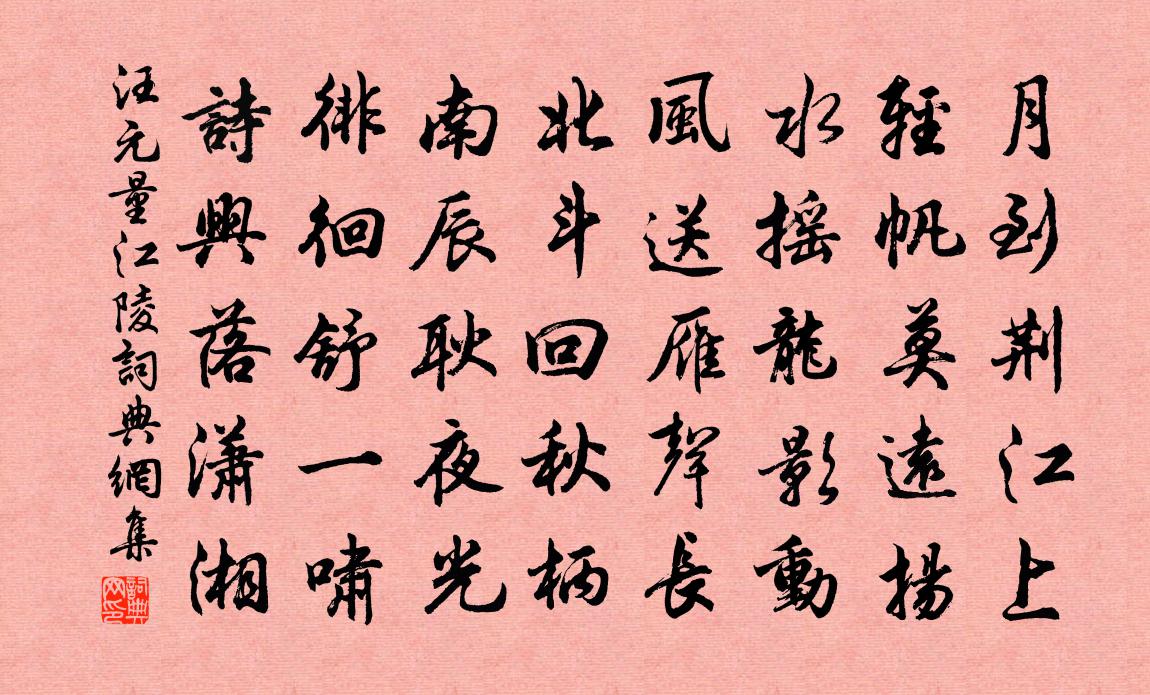 月到荆江上
輕帆莫遠揚
水摇龍影動
風送雁聲長
北斗回秋柄
南辰耿夜光
徘徊舒一啸
詩興落瀟湘
汪元量江陵詞典網集
詞典网印